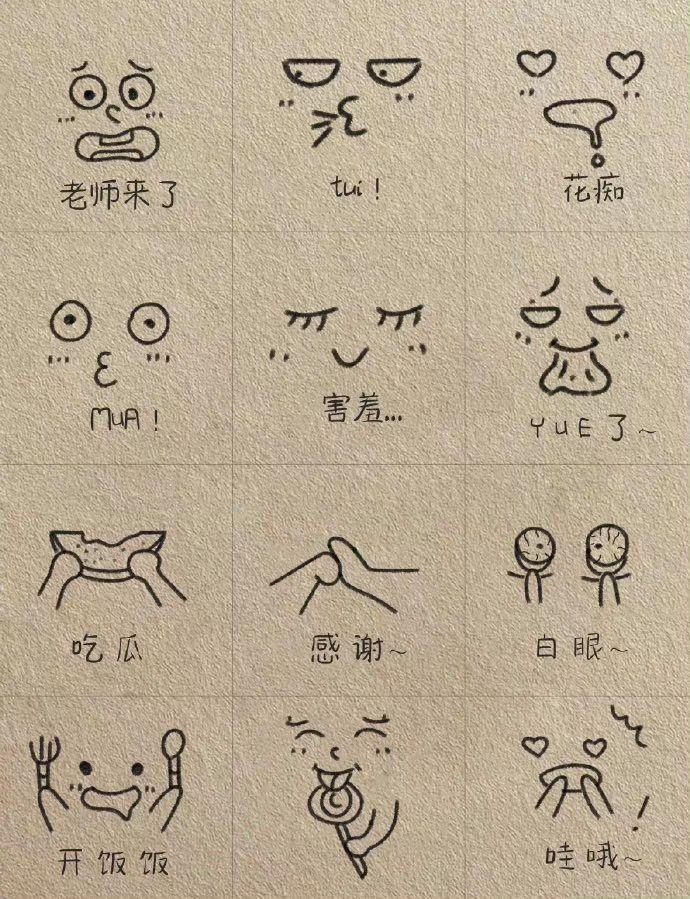 老师来了
tui!
花痴
MuA!
害羞...
YUE了~
吃瓜
感谢~
白眼~
开饭饭
哇哦~